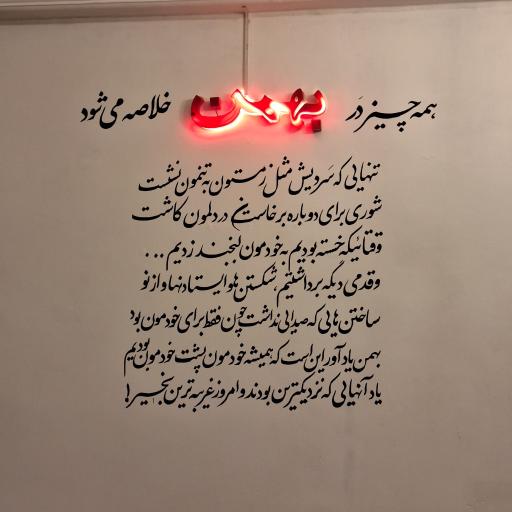 همه چیز در بهمن خلاصه می شود
تنهایی که سردیش مثل زمستون به تنمون نشست
شوری برای دوباره برخاستن در دلمون کاشت
وقتائیکه خسته بودیم به خودمون لبخند زدیم ...
و قدمی دیگه برداشتیم، شکستن ها و ایستادنها و از نو
ساختن هایی که صدایی نداشت چون فقط برای خودمون بود
بهمن یادآور این است که همیشه خودمون پشت خودمون بودیم
یاد آنهایی که نزدیکترین بودند و امروز غریبه ترین بخیر!